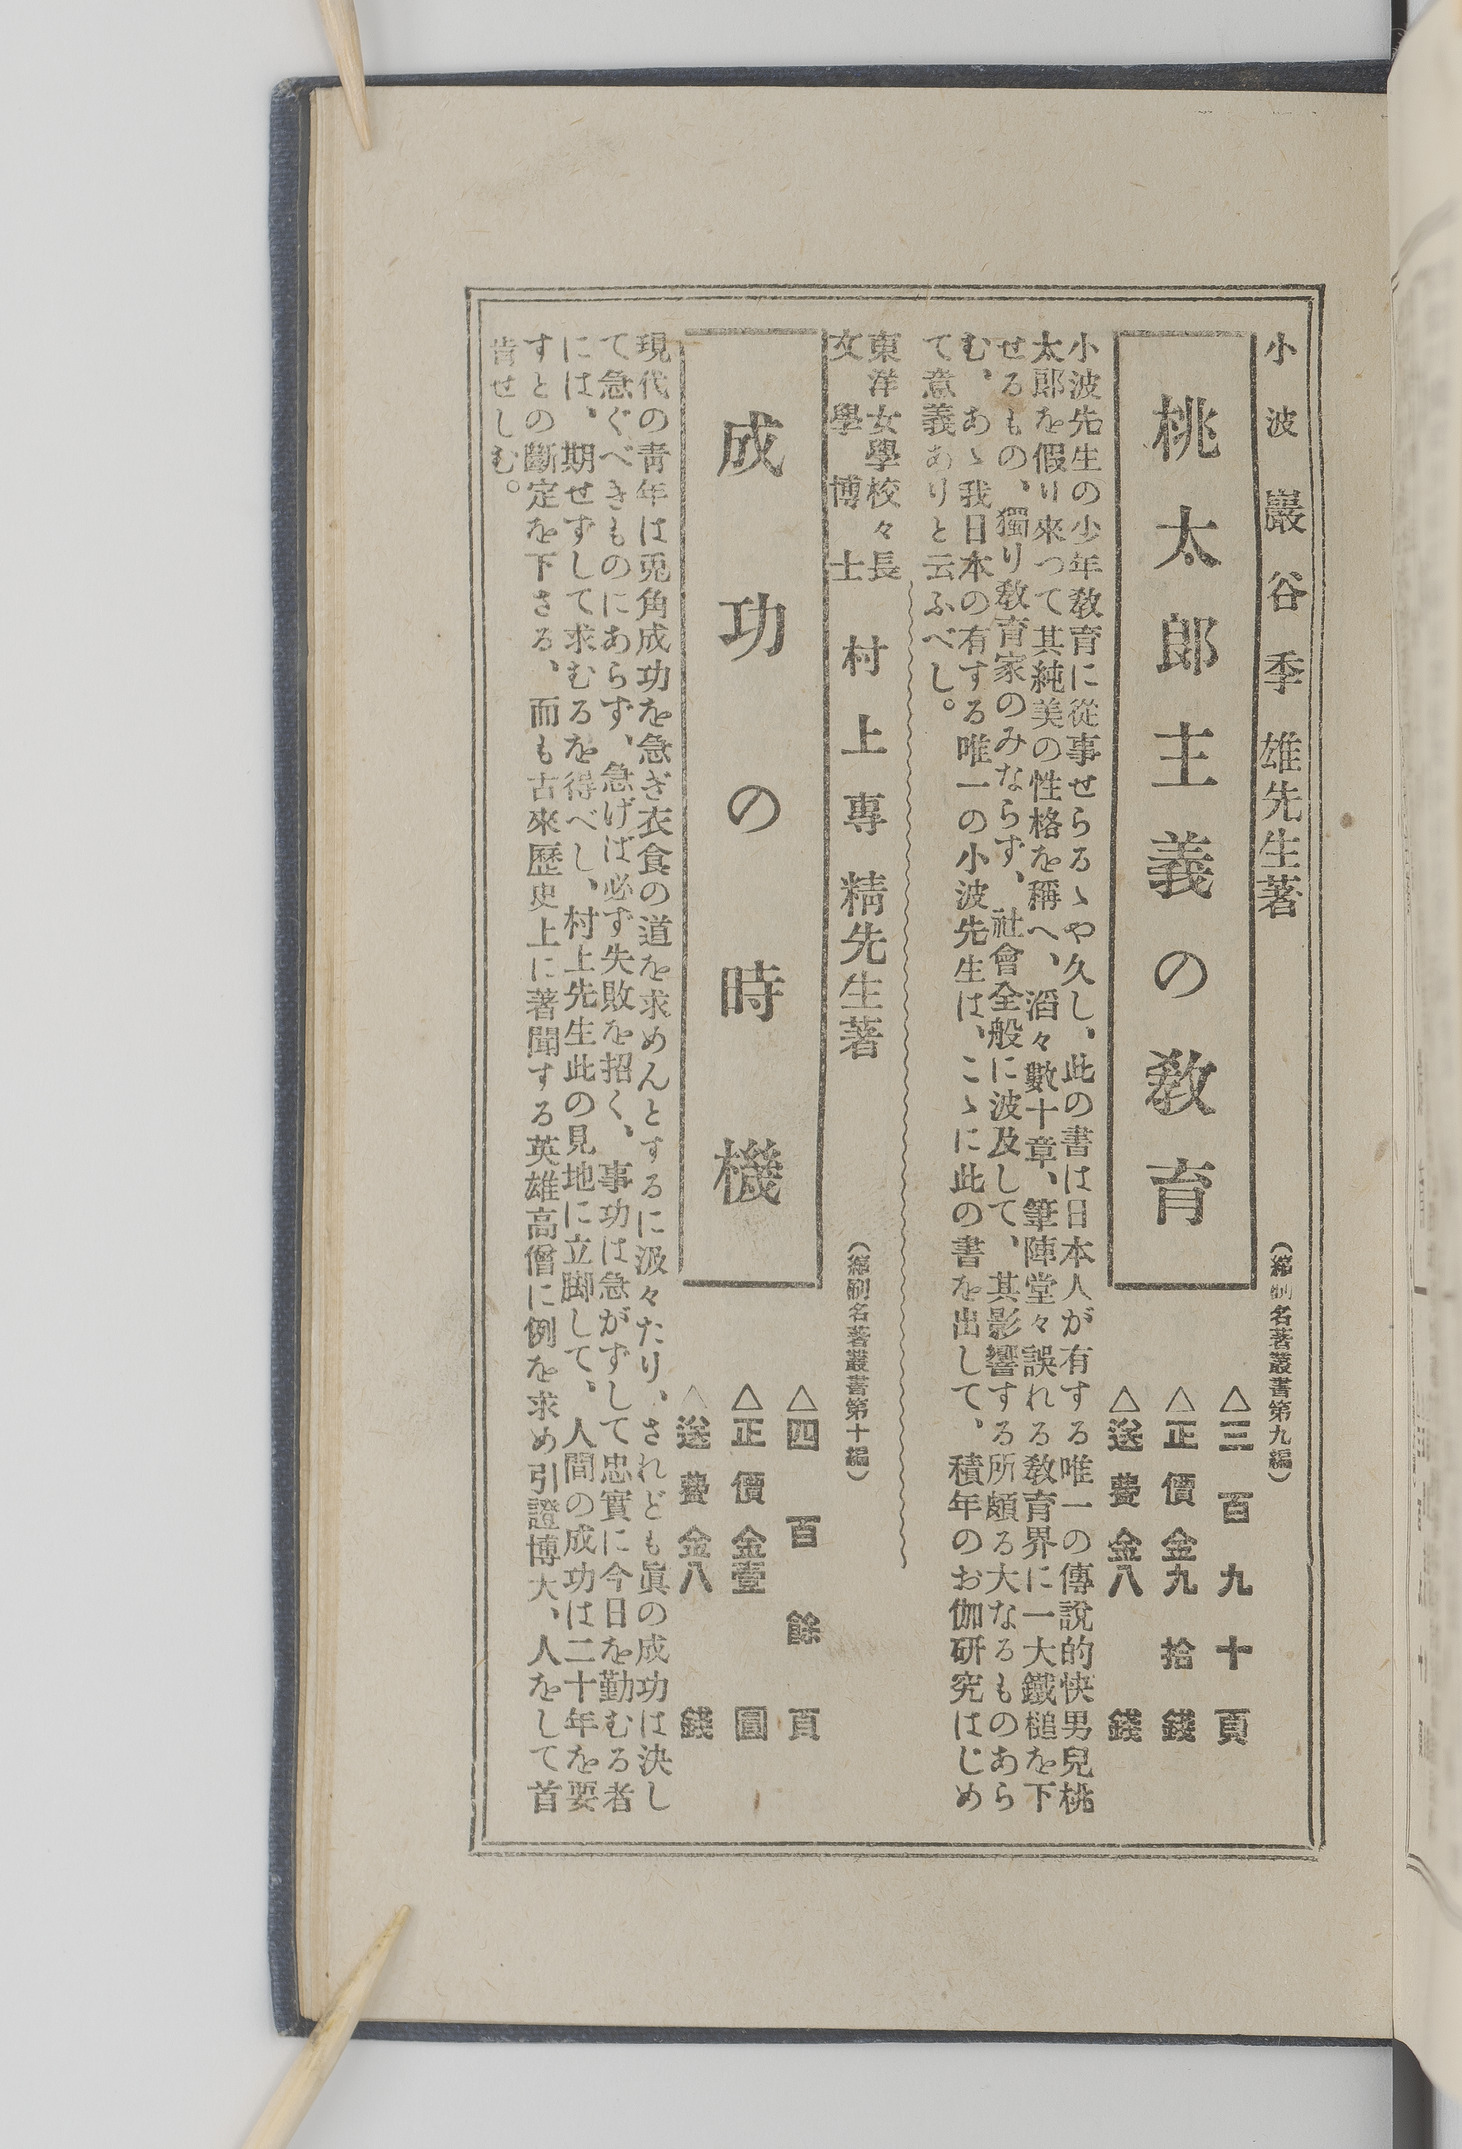 小波巖谷季雄先生著
(縮刷名著叢書第九編)
桃太郎主義の教育
△三百九十頁
△正價金九拾錢
△送費金八錢
小波先生の少年教育に從事せらるゝや久し、此の書は日本人が有する唯一の傳說的快男兒桃
太郎を假り來つて其純美の性格を稱へ、滔々數十章、筆陣堂々誤れる教育界に一大鐵槌を下
せるもの、獨り教育家のみならず、社會全般に波及して、其影響する所頗る大なるものあら
む、あゝ我日本の有する唯一の小波先生は、こゝに此の書を出して、積年のお伽硏究はじめ
て意義ありと云ふべし。
東洋女學校々長
文學博士
村上專精先生著
(縮刷名著叢書第十編)
成功の時機
△四百餘頁
△正價金壹圓
△送費金八錢
現代の靑年は兎角成功を急ぎ衣食の道を求めんとするに汲々たり、されども眞の成功は決し
て急ぐべきものにあらず、急げば必ず失敗を招く、事功は急がずして忠實に今日を勤むる者
には、期せずして求むるを得べし、村上先生此の見地に立脚して、人間の成功は二十年を要
すとの斷定を下さる、而も古來歷史上に著聞する英雄高僧に例を求め引證博大、人をして首
肯せしむ。